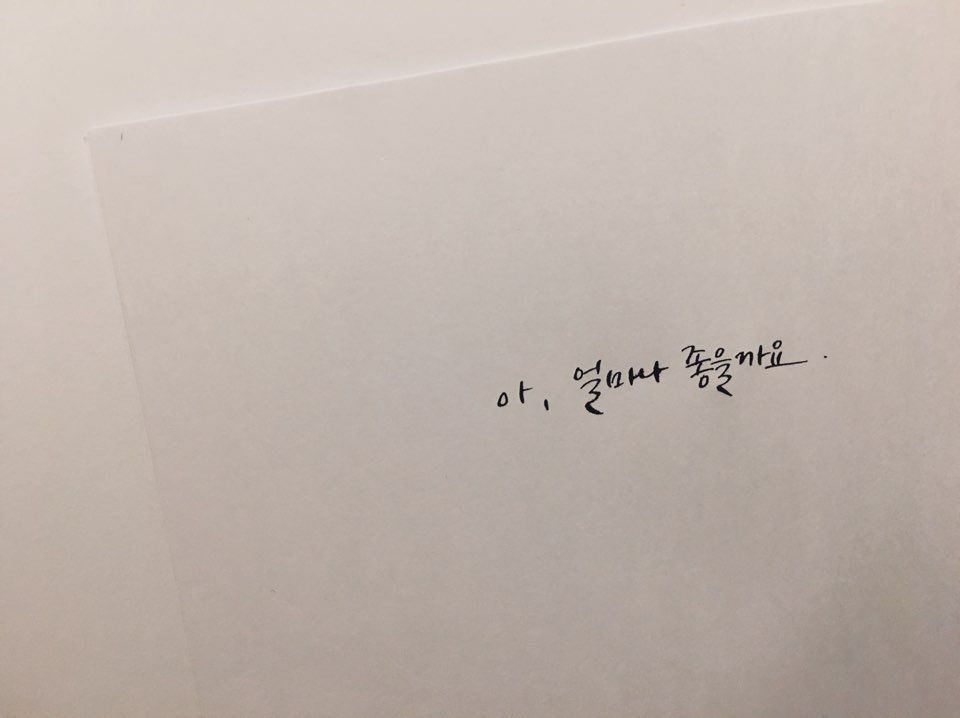 아, 얼마나 좋을까요.